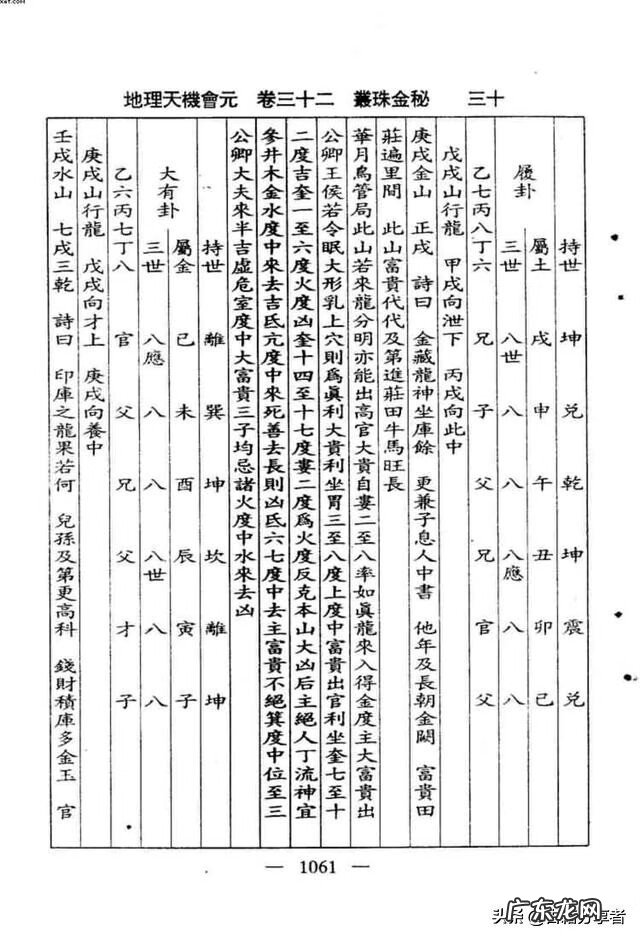 xet.com
地理天機會元　卷三十二　叢珠金秘　三十
持世　坤　兌　乾　坤　震　兌
履卦　屬土　戌　申　午　丑　卯　巳
三世　八世　八　八　八應　八　八
乙七丙八丁六　兄　子　父　兄　官　父
戊戌山行龍　甲戌向泄下　丙戌向此中
庚戌金山　正戌　詩曰　金藏龍神坐庫餘　更兼子息人中書　他年及長朝金闕　富貴田
莊遍里閭　此山富貴代代及第進莊田牛馬旺長
華月鳥管局此山若來龍分明亦能出高官大貴自婁二至八率如眞龍來入得金度主大富貴出
公卿王侯若令眠大形乳上穴則爲眞利大貴利坐胃三至八度上度中富貴出官利坐奎七至十
二度吉奎一至六度火度凶奎十四至十七度婁二度爲火度反克本山大凶后主絕人丁流神宜
參井木金水度中來去吉氐亢度中來死善去長則凶氐六七度中去主富貴不絕箕度中位至三
公卿大夫來半吉虛危室度中大富貴三子均忌諸火度中水來去凶
持世　離　巽　坤　坎　離　坤
大有卦　屬金　巳　未　酉　辰　寅　子
三世　八應　八　八　八世　八　八
乙六丙七丁八　官　父　兄　父　才　子
庚戌山行龍　戊戌向才上　庚戌向養中
壬戌水山　七戌三乾　詩曰　印庫之龍果若何　兒孫及第更高科　錢財積庫多金玉　官
— 1061 —
头条@古籍分享者
广东龙网